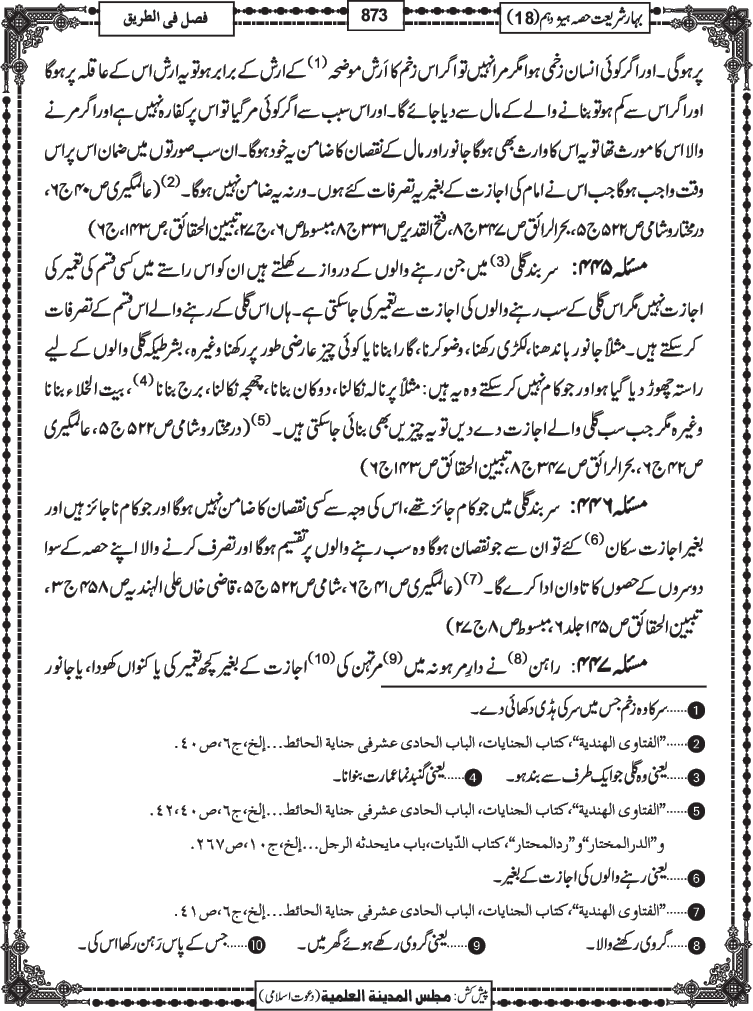 بہارِ شریعت حصہ ہیژدہم (18)
873
فصل فی الطریق
پر ہوگی۔ اور اگر کوئی انسان زخمی ہوا مگر مرا نہیں تو اگر اس زخم کا اَرش موضحہ (1) کے ارش کے برابر ہو تو یہ ارش اس کے عاقلہ پر ہوگا
اور اگر اس سے کم ہو تو بنانے والے کے مال سے دیا جائے گا۔ اور اس سبب سے اگر کوئی مر گیا تو اس پر کفارہ نہیں ہے اور اگر مرنے
والا اس کا مورث تھا تو یہ اس کا وارث بھی ہوگا جانور اور مال کے نقصان کا ضامن یہ خود ہوگا۔ ان سب صورتوں میں ضمان اس پر اس
وقت واجب ہوگا جب اس نے امام کی اجازت کے بغیر یہ تصرفات کئے ہوں۔ ورنہ یہ ضامن نہیں ہوگا۔(2) (عالمگیری ص۴۰ ج۶،
درمختار و شامی ص۵۲۲ ج۵، بحرالرائق ص۳۴۷ ج۸، فتح القدیر ص۳۳۱ ج۸، مبسوط ص۶، ج۲۷، تبیین الحقائق، ص۱۴۳، ج۶)
مسئلہ ۴۴۵: سر بند گلی (3) میں جن رہنے والوں کے دروازے کھلتے ہیں ان کو اس راستے میں کسی قسم کی تعمیر کی
اجازت نہیں مگر اس گلی کے سب رہنے والوں کی اجازت سے تعمیر کی جاسکتی ہے۔ ہاں اس گلی کے رہنے والے اس قسم کے تصرفات
کر سکتے ہیں۔ مثلاً جانور باندھنا، لکڑی رکھنا، وضو کرنا، گارا بنانا یا کوئی چیز عارضی طور پر رکھنا وغیرہ، بشرطیکہ گلی والوں کے لیے
راستہ چھوڑ دیا گیا ہو اور جو کام نہیں کر سکتے وہ یہ ہیں: مثلاً پرنالہ نکالنا، دوکان بنانا، چھجہ نکالنا، برج بنانا (4)، بیت الخلاء بنانا
وغیرہ مگر جب سب گلی والے اجازت دے دیں تو یہ چیزیں بھی بنائی جاسکتی ہیں۔(5) (درمختار و شامی ص۵۲۲ ج۵، عالمگیری
ص۴۲ ج۶، بحرالرائق ص۳۴۷ ج۸، تبیین الحقائق ص۱۴۳ ج۶)
مسئلہ ۴۴۶: سر بند گلی میں جو کام جائز تھے، اس کی وجہ سے کسی نقصان کا ضامن نہیں ہوگا اور جو کام ناجائز ہیں اور
بغیر اجازت سکان (6) کئے تو ان سے جو نقصان ہوگا وہ سب رہنے والوں پر تقسیم ہوگا اور تصرف کرنے والا اپنے حصہ کے سوا
دوسروں کے حصوں کا تاوان ادا کرے گا۔(7) (عالمگیری ص۴۱ ج۶، شامی ص۵۲۲ ج۵، قاضی خاں علی الہندیہ ص۴۵۸ ج۳،
تبیین الحقائق ص۱۴۵ جلد۶، مبسوط ص۸ ج۲۷)
مسئلہ ۴۴۷: راہن (8) نے دارِ مرہونہ میں (9) مرتہن کی (10) اجازت کے بغیر کچھ تعمیر کی یا کنواں کھودا، یا جانور
1 ......سر کا وہ زخم جس میں سر کی ہڈی دکھائی دے۔
2 ......"الفتاوی الهندیة"، کتاب الجنایات، الباب الحادی عشر فی جنایة الحائط...إلخ، ج۶، ص۴۰.
3 ......یعنی وہ گلی جو ایک طرف سے بند ہو۔ 4 ......یعنی گنبد نما عمارت بنوانا۔
5 ......"الفتاوی الهندیة"، کتاب الجنایات، الباب الحادی عشر فی جنایة الحائط...إلخ، ج۶، ص۴۰،۴۲.
و"الدرالمختار" و"ردالمحتار"، کتاب الدّیات، باب مایحدثه الرجل...إلخ، ج۱۰، ص۲۶۷.
6 ......یعنی رہنے والوں کی اجازت کے بغیر۔
7 ......"الفتاوی الهندیة"، کتاب الجنایات، الباب الحادی عشر فی جنایة الحائط...إلخ، ج۶، ص۴۱.
8 ......گروی رکھنے والا۔ 9 ......یعنی گروی رکھے ہوئے گھر میں۔ 10 ......جس کے پاس رَہن رکھا اس کی۔
پیش کش: مجلس المدینة العلمیة (دعوت اسلامی)